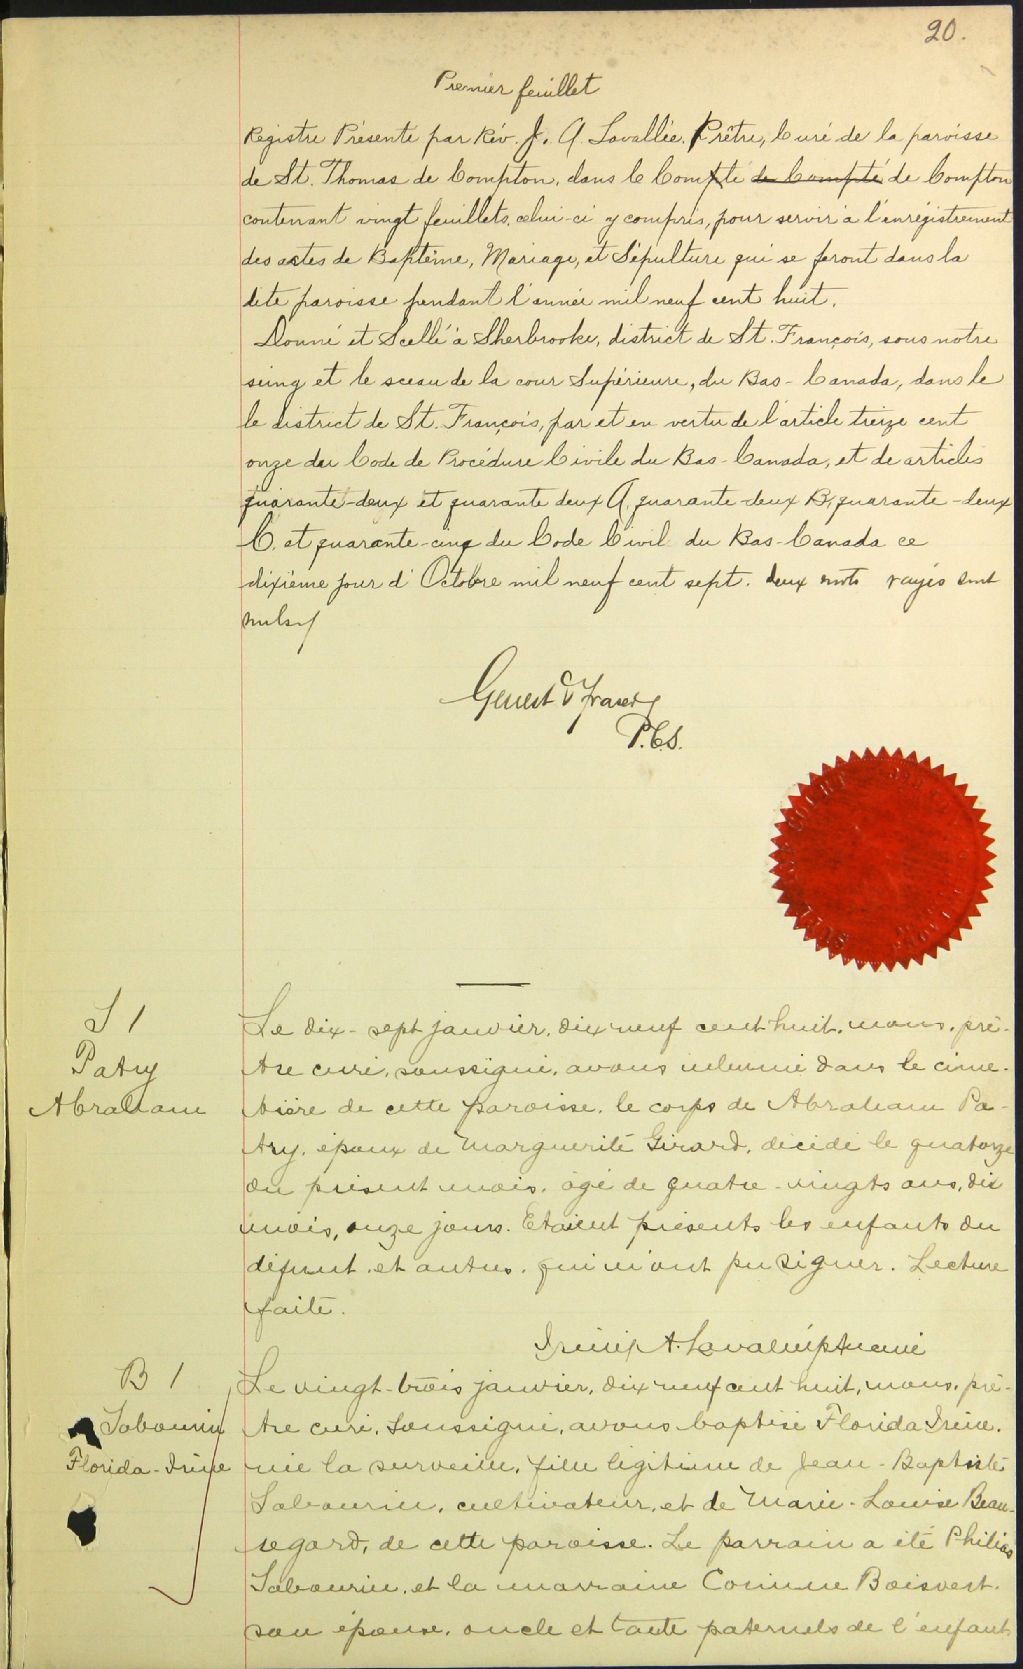 20.
Premier feuillet
Registre Présenté par Rév. J. A. Lavallée, Prêtre, Curé de la paroisse
de St. Thomas de Compton, dans le Compté de Compté de Compton
contenant vingt feuillets, celui-ci y compris, pour servir à l'enrégistrement
des actes de Baptême, Mariage, et Sépulture qui se feront dans la
dite paroisse pendant l'année mil neuf cent huit.
Donné et Scellé à Sherbrooke, district de St. François, sous notre
seing et le sceau de la cour Supérieure, du Bas-Canada, dans le
le district de St. François, par et en vertu de l'article treize cent
onze du Code de Procédure Civile du Bas-Canada, et de articles
quarante-deux et quarante deux A, quarante-deux B, quarante-deux
C. et quarante-cinq du Code Civil du Bas-Canada ce
dixième jour d'Octobre mil neuf cent sept. deux mots rayés sont
nuls
Genest & Fraser
P.C.S.
S 1
Patry
Abraham
Le dix-sept janvier, dix neuf cent huit, nous, prê-
tre curé, soussigné, avons inhumé dans le cime-
tière de cette paroisse, le corps de Abraham Pa-
try, époux de Marguerite Girard, décédé le quatorze
du présent mois, âgé de quatre-vingts ans, dix
mois, onze jours. Etaient présents les enfants du
défunt et autres, qui n'ont pu signer. Lecture
faite.
A. Lavallée ptre curé
B 1
Sabourin
Florida-Irène
Le vingt-trois janvier, dix neuf cent huit, nous, prê-
tre curé, soussigné, avons baptisé Florida Irène,
née la surveille, fille légitime de Jean-Baptiste
Sabourin, cultivateur, et de Marie-Louise Beau-
regard, de cette paroisse. Le parrain a été Philias
Sabourin, et la marraine Corinne Boisvert,
son épouse, oncle et tante paternels de l'enfant